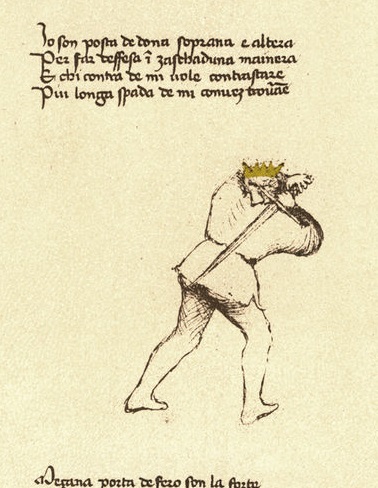 Io son posta de dona soprana e altera
Per far deffesa ī zaschaduna mainera
E chi contra de mi uole contrastare
Piu longa spada de mi conuē trouare
Mezana porta de fero son la forte